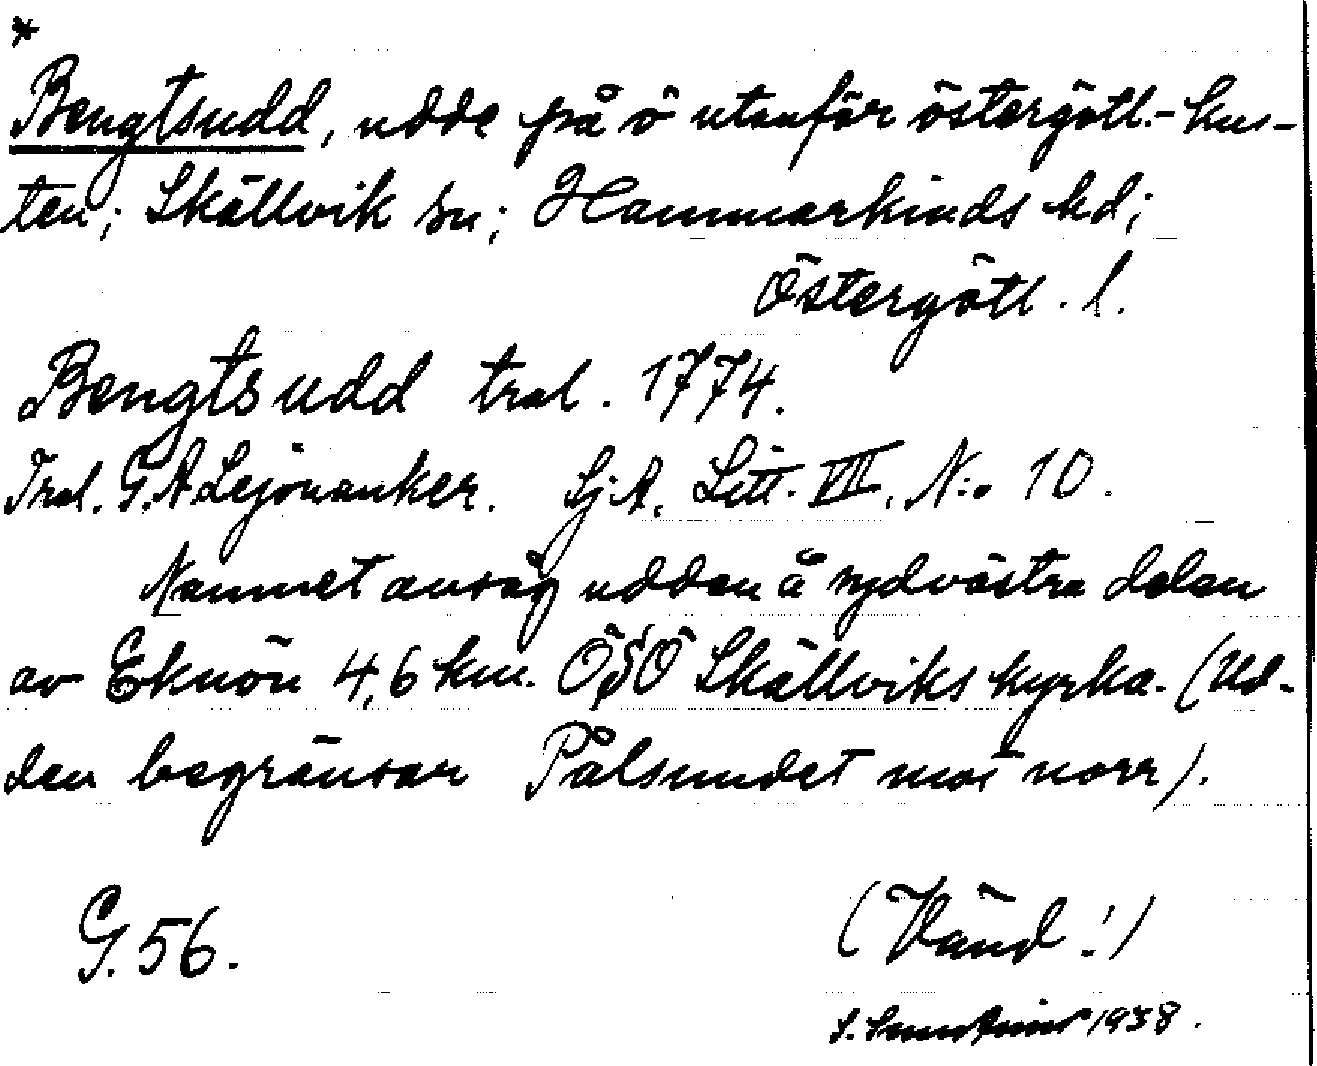 *
Bengtsudd, udde på ö utanför östergötl.-kus-
ten; Skällvik sn; Hammarkinds hd;
Östergötl. l.
Bengtsudd tral. 1774.
Tral. G.A Lejonanker. Sj.A. Litt. VII. N:o 10.
Namnet avsåg udden å sydvästra delen
av Eknön 4,6 km. ÖSÖ Skällviks kyrka. (Ud-
den begränsar Pålsundet mot norr).
G. 56.
(Vänd!)
S. 1938.